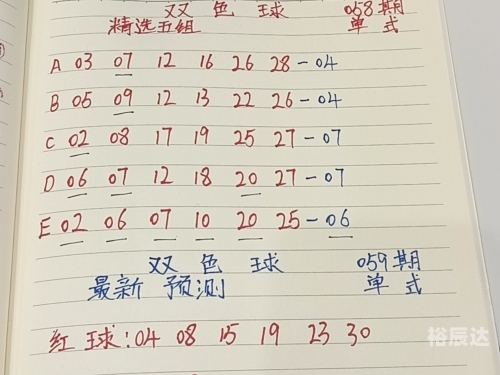 双色球 058期
精选五组 单式
A 03 07 12 16 26 28-04
B 05 09 12 13 22 26-04
C 02 08 17 19 25 27-07
D 06 07 12 18 20 27-07
E 02 06 07 10 20 25-06
双色球 059期
最新预测 单式
红球:04 08 15 19 23 30
裕辰达